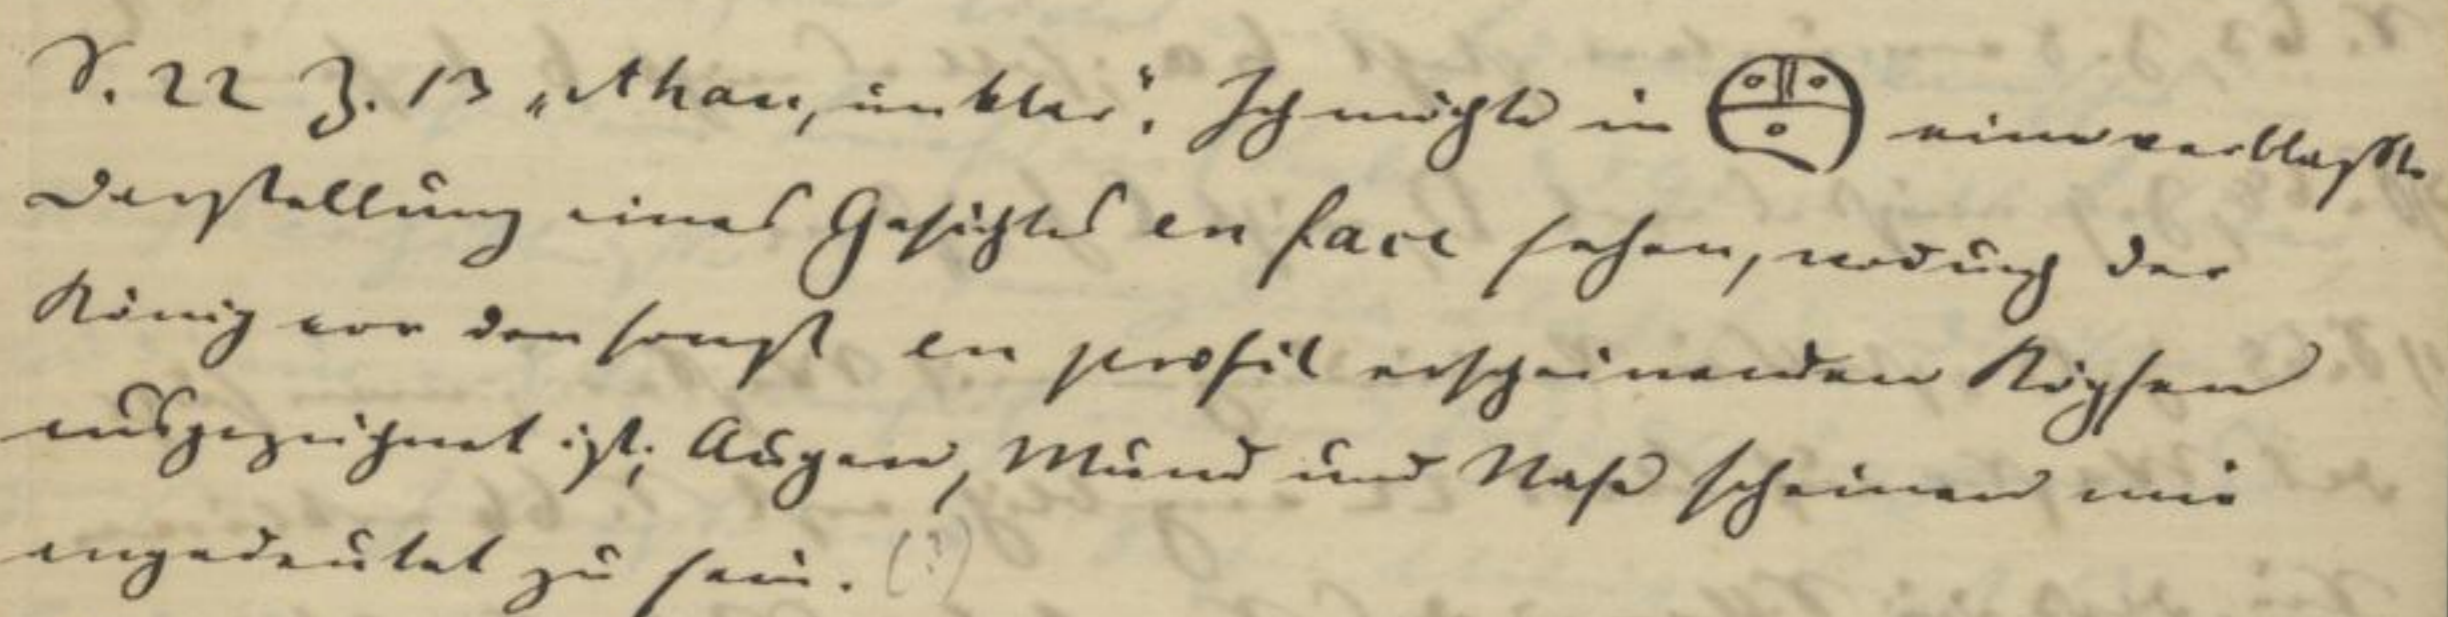 S. 22 Z. 13 „Ahau, unklar“. Ich möchte in eine verblaßte
Darstellung eines Gesichtes en face sehen, wodurch der
König vor den sonst en profil erscheinenden Köpfen
ausgezeichnet ist; Augen, Mund und Nase scheinen mir
angedeutet zu sein. (?)